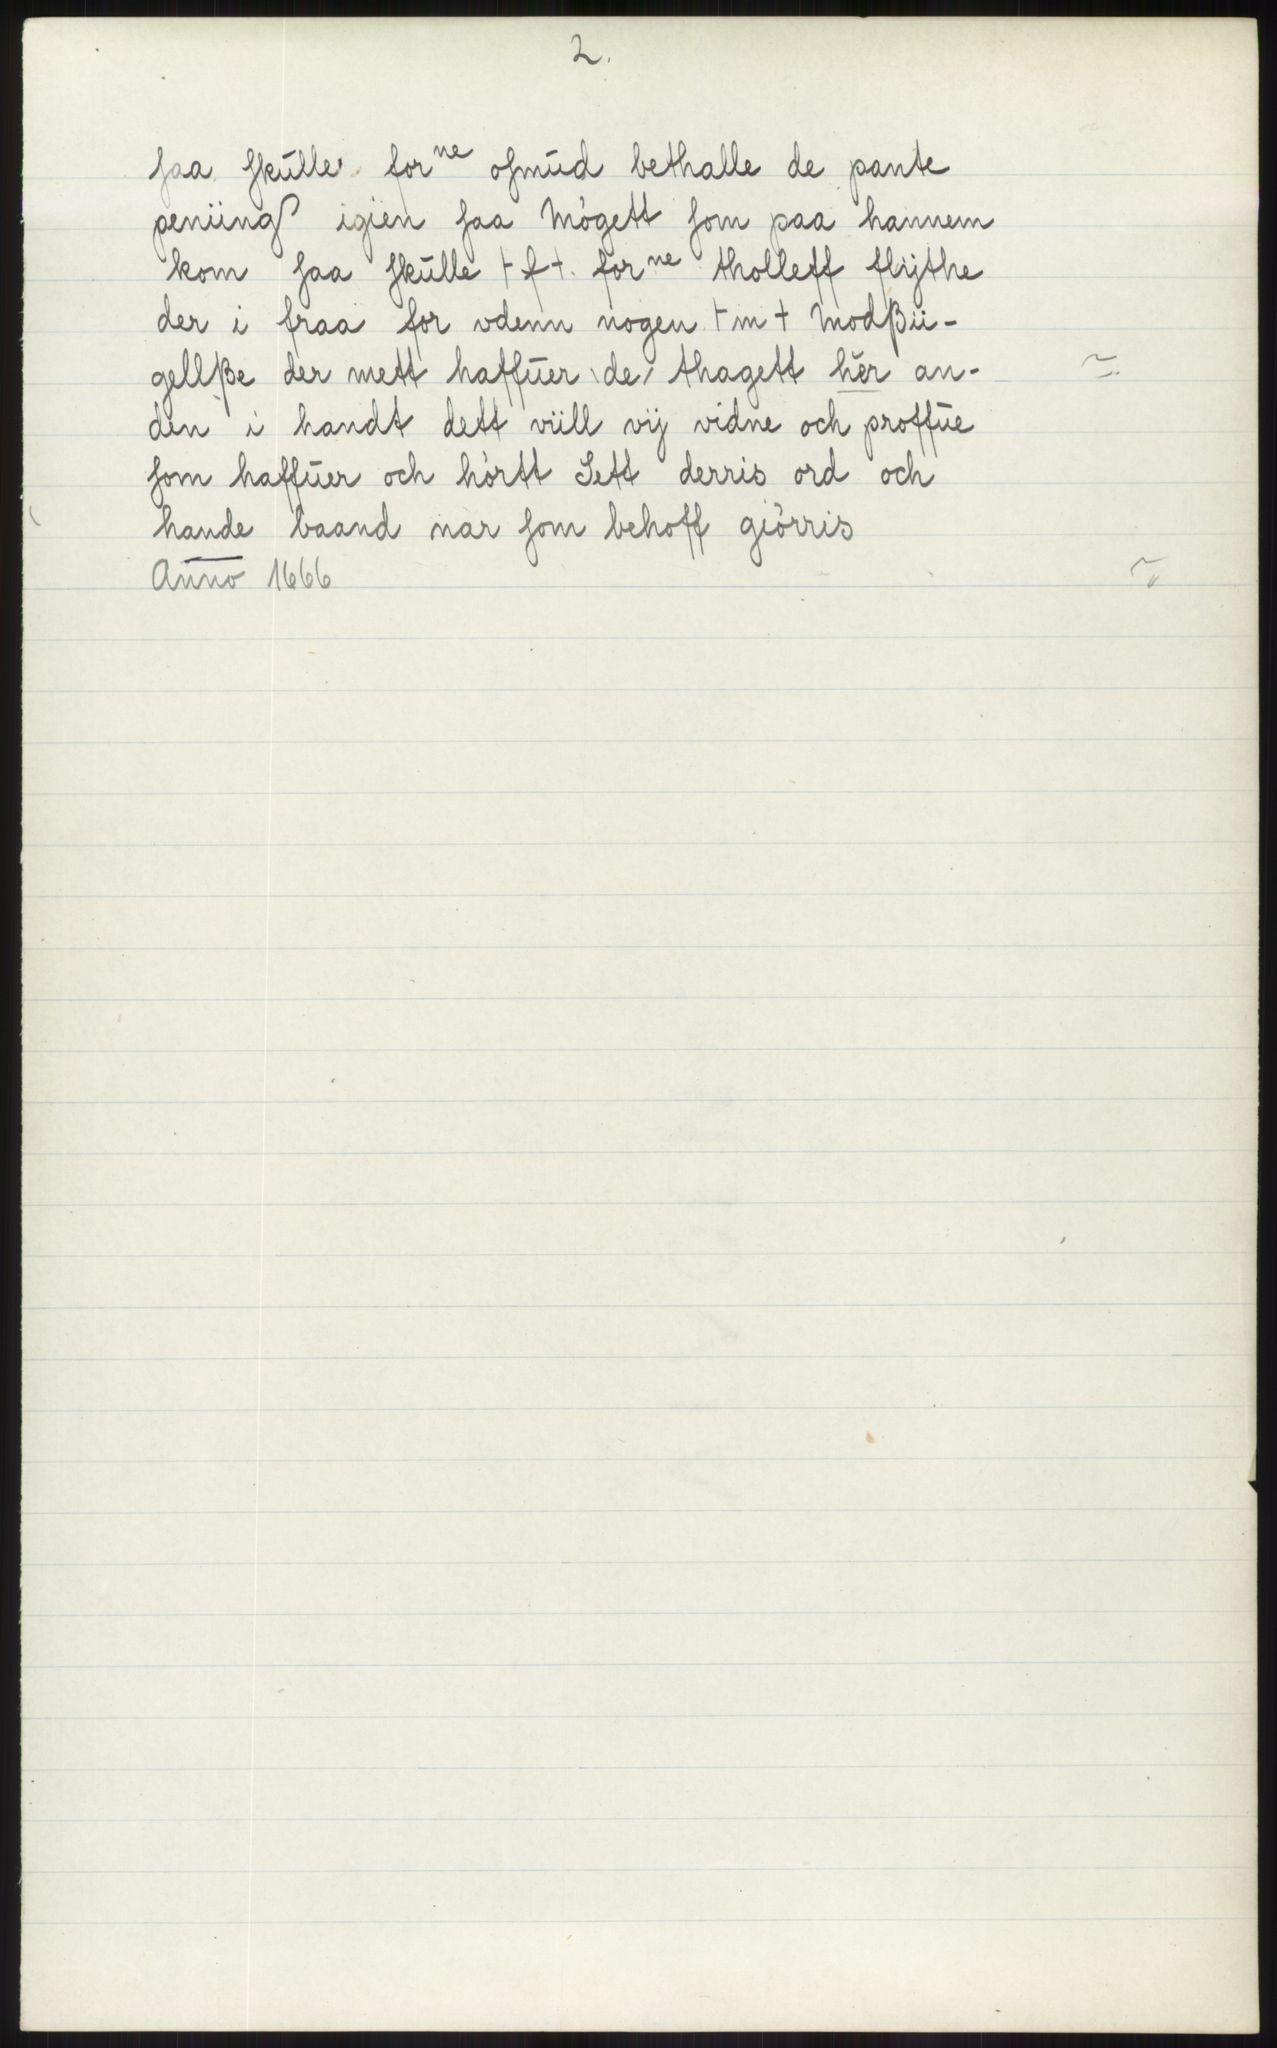 2.
ſaa ſkŭlle for^ne oſmŭd bethalle de pante
peniing igien ſaa Mógett ſom paa hannem
kom ſaa ſkŭlle +f+ for^ne tholleff flijthe
der i fraa for vdenn nogen +m+ Modβii-
gellβe der mett haffŭer \de/ thagett hĕr an-
den i handt dett viill vij vidne och proffŭe
ſom haffŭer och hórtt Sett derris ord och
hande baand nar ſom behoff giórris
Anno 1666